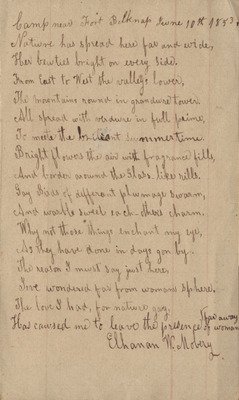 Camp near Fort Belknap June 10th 1853
Nature has spread here far and wide,
Her beuties bright on every side.
From East to West the valleys lower,
The mountains round in grandure tower.
All spread with verdure in full prime,
To meete the brilliant summertime.
Bright flowers the air with fragrance fills,
And border around the Slass like rills.
Gay birds of different plumage swarm,
And warble sweet each others charm.
Why not those things enchant my eye,
As they have done in days gon by.
The reason I must say just here,
I've wondered far from womans sphere.
The love I had, for nature gay,
Has caused me to leave the presence of woman
far away
Elhanan W.